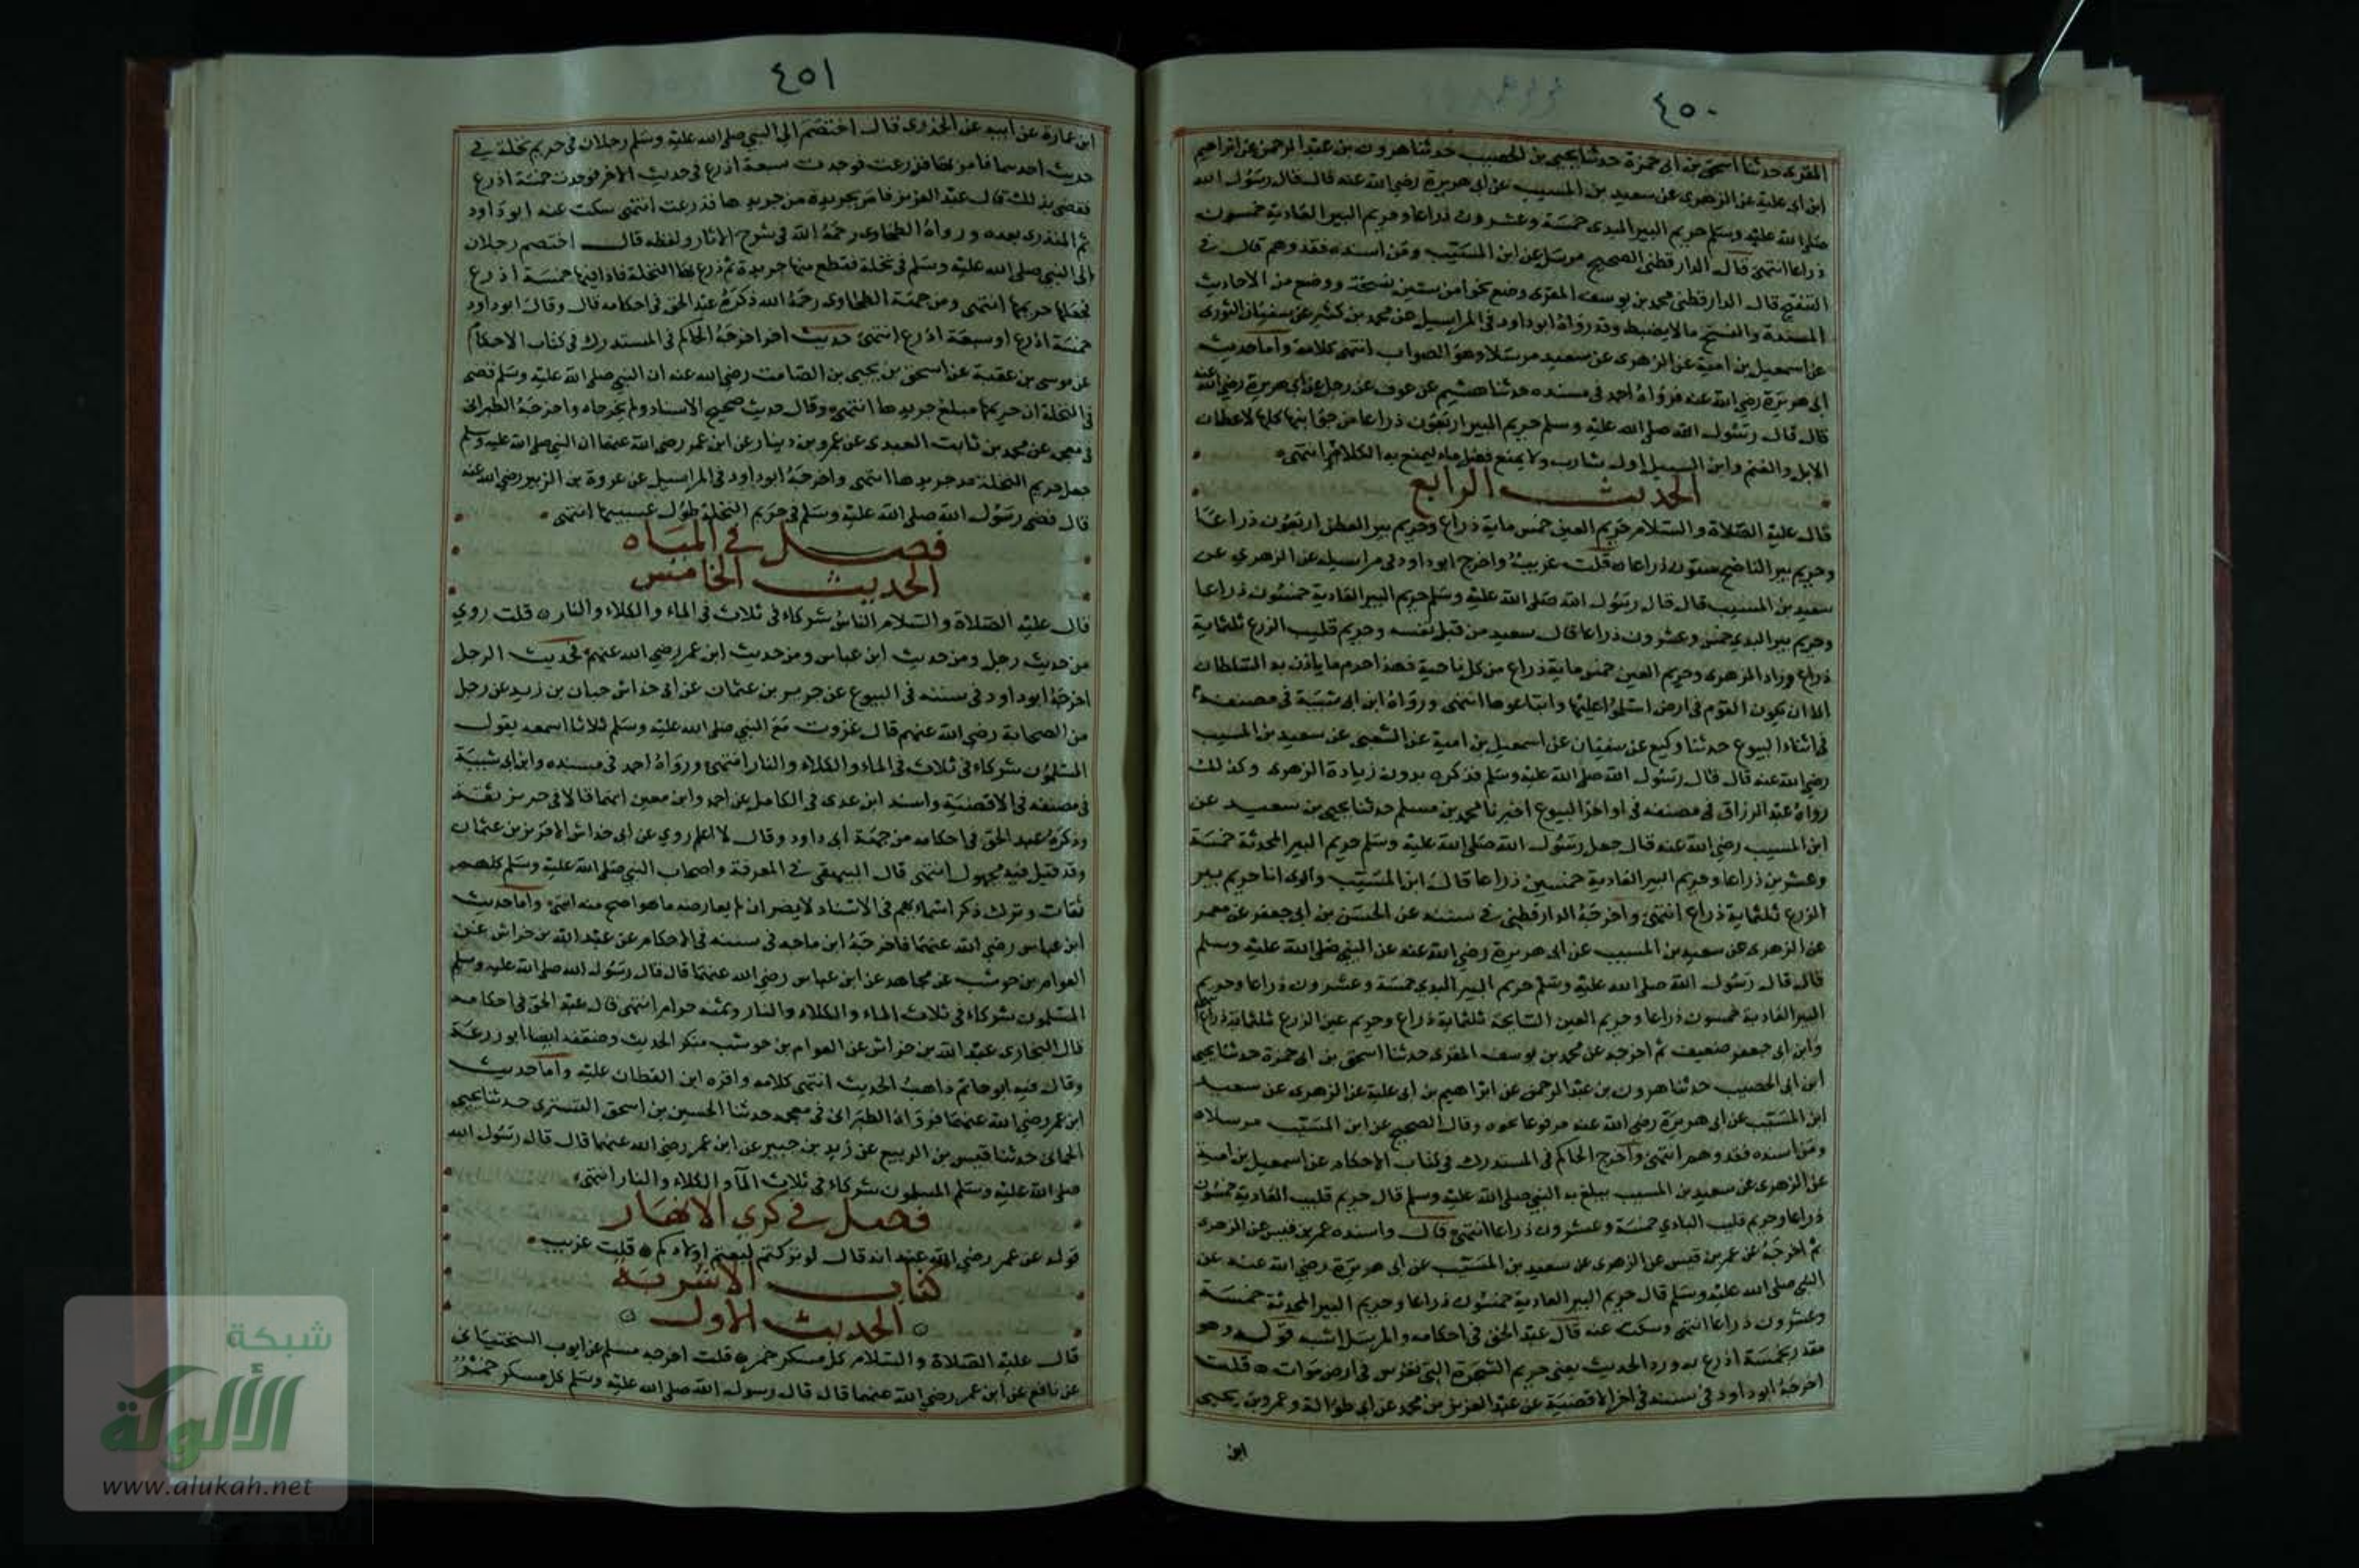 ٤٥٠
المقرى حدثنا اسحق بن ابى حمزة حدثنا يحيى بن الخصيب حدثنا هرون بن عبد الرحمن عن ابراهيم
ابن ابى علية عن الزهرى عن سعيد بن المسيب عن ابى هريرة رضى الله عنه قال قال رسول الله
صلى الله عليه وسلم حريم البير البدى خمسة وعشرون ذراعا وحريم البير العادية خمسون
ذراعا انتهى قال الدارقطنى الصحيح مرسل عن ابن المسيب ومن اسنده فقد وهم قال فى
التنقيح قال الدارقطنى محمد بن يوسف المقرى وضع نحوا من ستين نسخة ووضع من الاحاديث
المسندة والنسخ مالا يضبط وقد رواه ابو داود فى المراسيل عن محمد بن كثير عن سفيان الثورى
عن اسمعيل بن امية عن الزهرى عن سعيد مرسلا وهو الصواب انتهى كلامه واما حديث
ابى هريرة رضى الله عنه فرواه احمد فى مسنده حدثنا هشيم عن عوف عن رجل عن ابى هريرة رضى الله عنه
قال قال رسول الله صلى الله عليه وسلم حريم البير اربعون ذراعا من جوانبها كلها لاعطان
الابل والغنم وابن السبيل اول شارب ولا يمنع فضل ماء ليمنع به الكلاء انتهى
الحديث الرابع
قال عليه الصلاة والسلام حريم العين خمس ماية ذراع وحريم بير العطن اربعون ذراعا
وحريم بير الناضح ستون ذراعا قلت غريب واخرج ابو داود فى مراسيله عن الزهري عن
سعيد بن المسيب قال قال رسول الله صلى الله عليه وسلم حريم البير العادية خمسون ذراعا
وحريم بير البدي خمس وعشرون ذراعا قال سعيد من قبل نفسه وحريم قليب الزرع ثلثماية
ذراع وزاد الزهرى وحريم العين خمسماية ذراع من كل ناحية فهذا حرم ما ياذن به السلطان
الا ان يكون القوم فى ارض اسلموا عليها وابتاعوها انتهى ورواه ابن ابى شيبة فى مصنفه
فى اثناء البيوع حدثنا وكيع عن سفيان عن اسمعيل بن امية عن الشعبى عن سعيد بن المسيب
رضى الله عنه قال قال رسول الله صلى الله عليه وسلم فذكره بدون زيادة الزهرى وكذلك
رواه عبد الرزاق فى مصنفه فى اواخر البيوع اخبرنا محمد بن مسلم حدثنا يحيى بن سعيد عن
ابن المسيب رضى الله عنه قال جعل رسول الله صلى الله عليه وسلم حريم البير المحدثة خمسة
وعشرين ذراعا وحريم البير العادية خمسين ذراعا قال ابن المسيب وارى انا حريم بير
الزرع ثلثماية ذراع انتهى واخرجه الدارقطنى فى سننه عن الحسن بن ابى جعفر عن معمر
عن الزهرى عن سعيد بن المسيب عن ابى هريرة رضى الله عنه عن النبى صلى الله عليه وسلم
قال قال رسول الله صلى الله عليه وسلم حريم البير البدي خمسة وعشرون ذراعا وحريم
البير العادية خمسون ذراعا وحريم العين السايحة ثلثماية ذراع وحريم عين الزرع ثلثماية ذراع
وابن ابى جعفر ضعيف ثم اخرجه عن محمد بن يوسف المقرى حدثنا اسحق بن ابى حمزة حدثنا يحيى
ابن ابى الخصيب حدثنا هرون بن عبد الرحمن عن ابراهيم بن ابى علية عن الزهرى عن سعيد
ابن المسيب عن ابى هريرة رضى الله عنه مرفوعا نحوه وقال الصحيح عن ابن المسيب مرسلا
ومن اسنده فقد وهم انتهى واخرج الحاكم فى المستدرك فى كتاب الاحكام عن اسمعيل بن امية
عن الزهرى عن سعيد بن المسيب يبلغ به النبى صلى الله عليه وسلم قال حريم قليب العادية خمسون
ذراعا وحريم قليب البادي خمسة وعشرون ذراعا انتهى قال واسنده عمر بن قيس عن الزهرى
ثم اخرجه عن عمر بن قيس عن الزهرى عن سعيد بن المسيب عن ابى هريرة رضى الله عنه عن
النبى صلى الله عليه وسلم قال حريم البير العادية خمسون ذراعا وحريم البير المحدثة خمسة
وعشرون ذراعا انتهى وسكت عنه قال عبد الحق فى احكامه والمرسل اشبه قوله وهو
مقدر بخمسة اذرع به ورد الحديث يعنى حريم الشجرة التى تغرس فى ارض موات قلت
اخرجه ابو داود فى سننه فى اخر الاقضية عن عبد العزيز بن محمد عن ابى طوالة وعمرو بن يحيى
ابن
٤٥١
ابن عمارة عن ابيه عن الخدرى قال اختصم الى النبى صلى الله عليه وسلم رجلان فى حريم نخلة فى
حديث احدهما فامر بها فذرعت فوجدت سبعة اذرع فى حديث الاخر فوجدت خمسة اذرع
فقضى بذلك قال عبد العزيز فامر بجريدة من جريدها فذرعت انتهى سكت عنه ابو داود
ثم المنذرى بعده ورواه الطحاوى رحمه الله فى شرح الاثار ولفظه قال اختصم رجلان
الى النبى صلى الله عليه وسلم فى نخلة فقطع منها جريدة ثم ذرع بها النخلة فاذا فيها خمسة اذرع
فجعلها حريمها انتهى ومن جهة الطحاوى رحمه الله ذكره عبد الحق فى احكامه قال وقال ابو داود
خمسة اذرع او سبعة اذرع انتهى حديث اخر اخرجه الحاكم فى المستدرك فى كتاب الاحكام
عن موسى بن عقبة عن اسحق بن يحيى بن الصامت رضى الله عنه ان النبى صلى الله عليه وسلم قضى
فى النخلة ان حريمها مبلغ جريدها انتهى وقال حديث صحيح الاسناد ولم يخرجاه واخرجه الطبرانى
فى معجمه عن محمد بن ثابت العبدى عن عمرو بن دينار عن ابن عمر رضى الله عنهما ان النبى صلى الله عليه وسلم
جعل حريم النخلة مد جريدها انتهى واخرجه ابو داود فى المراسيل عن عروة بن الزبير رضى الله عنه
قال قضى رسول الله صلى الله عليه وسلم فى حريم النخلة طول عسيبها انتهى
فصل فى المياه
الحديث الخامس
قال عليه الصلاة والسلام الناس شركاء فى ثلاث فى الماء والكلاء والنار قلت روي
من حديث رجل ومن حديث ابن عباس ومن حديث ابن عمر رضى الله عنهم فحديث الرجل
اخرجه ابو داود فى سننه فى البيوع عن حريز بن عثمان عن ابى خداش حبان بن زيد عن رجل
من الصحابة رضى الله عنهم قال غزوت مع النبى صلى الله عليه وسلم ثلاثا اسمعه يقول
المسلمون شركاء فى ثلاث فى الماء والكلاء والنار انتهى ورواه احمد فى مسنده وابن ابى شيبة
فى مصنفه فى الاقضية واسند ابن عدى فى الكامل عن احمد وابن معين انهما قالا فى حريز ثقة
وذكره عبد الحق فى احكامه من جهة ابى داود وقال لا اعلم روي عن ابى خداش الا حريز بن عثمان
وقد قيل فيه مجهول انتهى قال البيهقى فى المعرفة واصحاب النبى صلى الله عليه وسلم كلهم
ثقات وترك ذكر اسمائهم فى الاسناد لا يضر ان لم يعارضه ما هو اصح منه انتهى واما حديث
ابن عباس رضى الله عنهما فاخرجه ابن ماجه فى سننه فى الاحكام عن عبد الله بن خراش عن
العوام بن حوشب عن مجاهد عن ابن عباس رضى الله عنهما قال قال رسول الله صلى الله عليه وسلم
المسلمون شركاء فى ثلاث الماء والكلاء والنار وثمنه حرام انتهى قال عبد الحق فى احكامه
قال البخارى عبد الله بن خراش عن العوام بن حوشب منكر الحديث وضعفه ايضا ابو زرعة
وقال فيه ابو حاتم ذاهب الحديث انتهى كلامه واقره ابن القطان عليه واما حديث
ابن عمر رضى الله عنهما فرواه الطبرانى فى معجمه حدثنا الحسين بن اسحق التسترى حدثنا يحيى
الحمانى حدثنا قيس بن الربيع عن زيد بن جبير عن ابن عمر رضى الله عنهما قال قال رسول الله
صلى الله عليه وسلم المسلمون شركاء فى ثلاث الماء والكلاء والنار انتهى
فصل فى كري الانهار
قوله عن عمر رضى الله عنه انه قال لو تركتم لبعتم اولادكم قلت غريب
كتاب الاشربة
الحديث الاول
قال عليه الصلاة والسلام كل مسكر خمر قلت اخرجه مسلم عن ايوب السختيانى
عن نافع عن ابن عمر رضى الله عنهما قال قال رسول الله صلى الله عليه وسلم كل مسكر خمر
شبكة
الألوكة
www.alukah.net